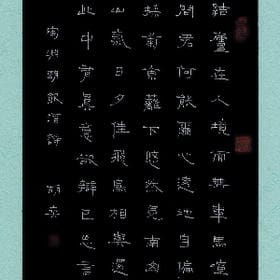 結廬在人境而無車馬喧
問君何能爾心遠地自偏
採菊東籬下悠然見南山
山氣日夕佳飛鳥相與還
此中有真意欲辯已忘言
陶淵明飲酒詩 胡